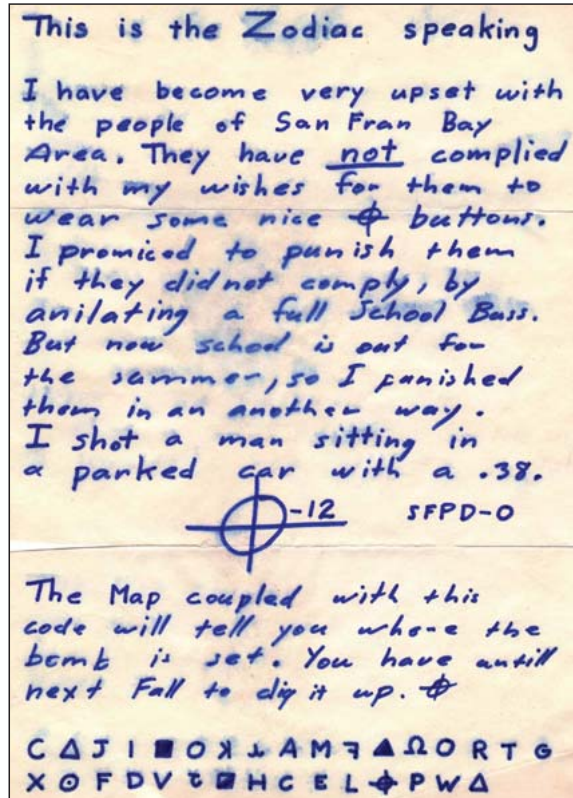 This is the Zodiac speaking
I have become very upset with
the people of San Fran Bay
Area. They have not complied
with my wishes for them to
wear some nice ⌖ buttons.
I promiced to punish them
if they did not comply, by
anilating a full School Buss.
But now school is out for
the summer, so I punished
them in an another way.
I shot a man sitting in
a parked car with a .38.
⌖-12 SFPD-0
The Map coupled with this
code will tell you where the
bomb is set. You have untill
next Fall to dig it up. ⌖
C Δ J I ■ O ꓘ ⅄ A M ꟻ ▲ Ω O R T G
X ⊙ F D V ⊄ ◪ H C E L ⌖ P W Δ